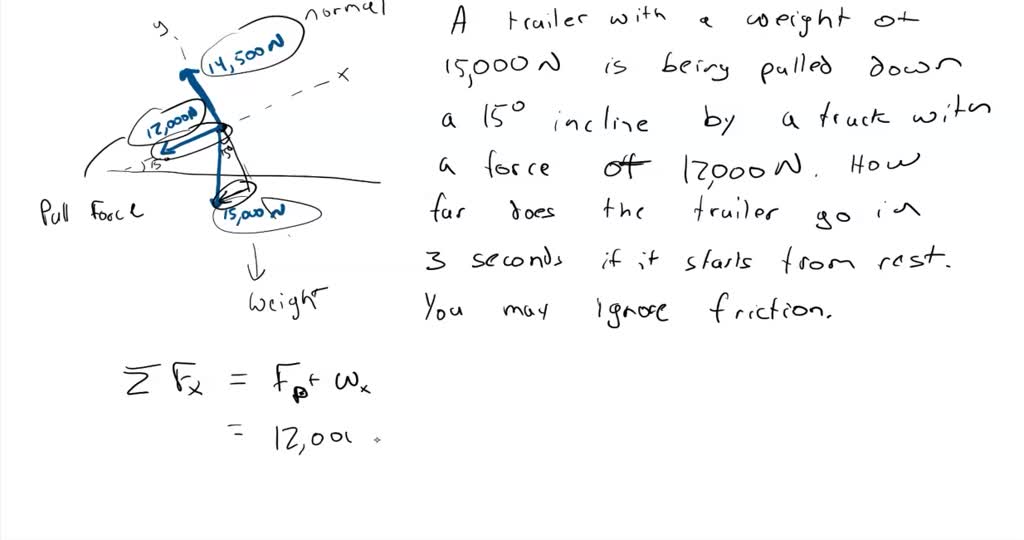 normal
y
14,500N
x
12,000N
15°
15°
Pull Force
15,000N
Weight
A trailer with a weight of
15,000N is being pulled down
a 15° incline by a truck with
a force of 12,000N. How
far does the trailer go in
3 seconds if it starts from rest.
You may ignore friction.
Σ Fx = Fp + ωx
= 12,000